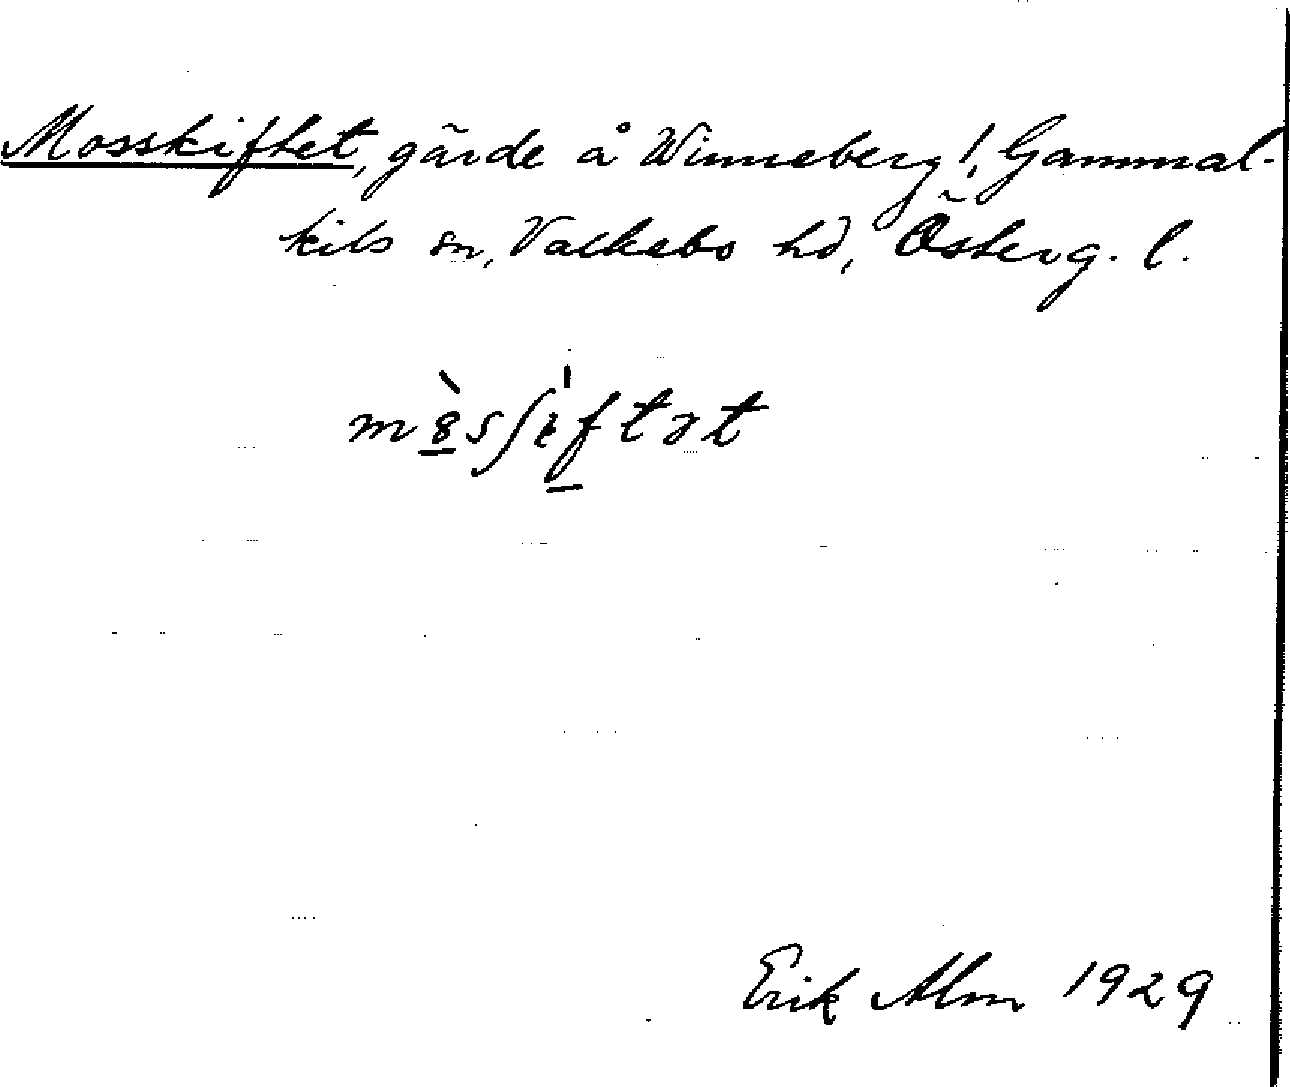 Mosskiftet, gärde å Winneberg!, Gammal-
kils sn, Valkebo hd, Österg. l.
Erik Alm 1929